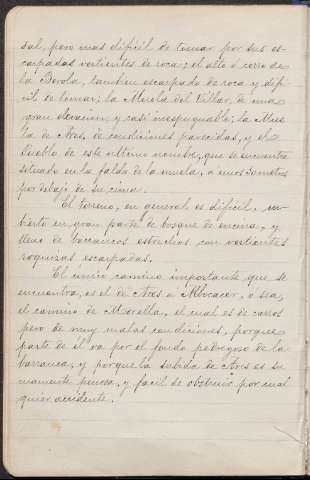 sal, pero mas dificil de tomar por sus es-
carpadas vertientes de roca; el alto ó cerro de
la Borola, tambien escarpado de roca y difi-
cil de tomar; la Muela del Villar, de una
gran elevacion y casi inexpugnable; la Mue-
la de Ares, de condiciones parecidas, y el
Pueblo de este ultimo nombre, que se encuentra
situado en la falda de la muela, á unos 30 metros
por debajo de su cima.
El terreno, en general es dificil, cu-
bierto en gran parte de bosque de encina, y
lleno de barrancos estrechos con vertientes
roquizas escarpadas.
El único camino importante que se
encuentra, es el de Ares á Albocacer, ó sea,
el camino de Morella, el cual es de carros
pero de muy malas condiciones, porque
parte de él va por el fondo pedregoso de la
barranca, y porque la subida de Ares es su-
mamente penosa, y facil de obstruir por cual
quier accidente.